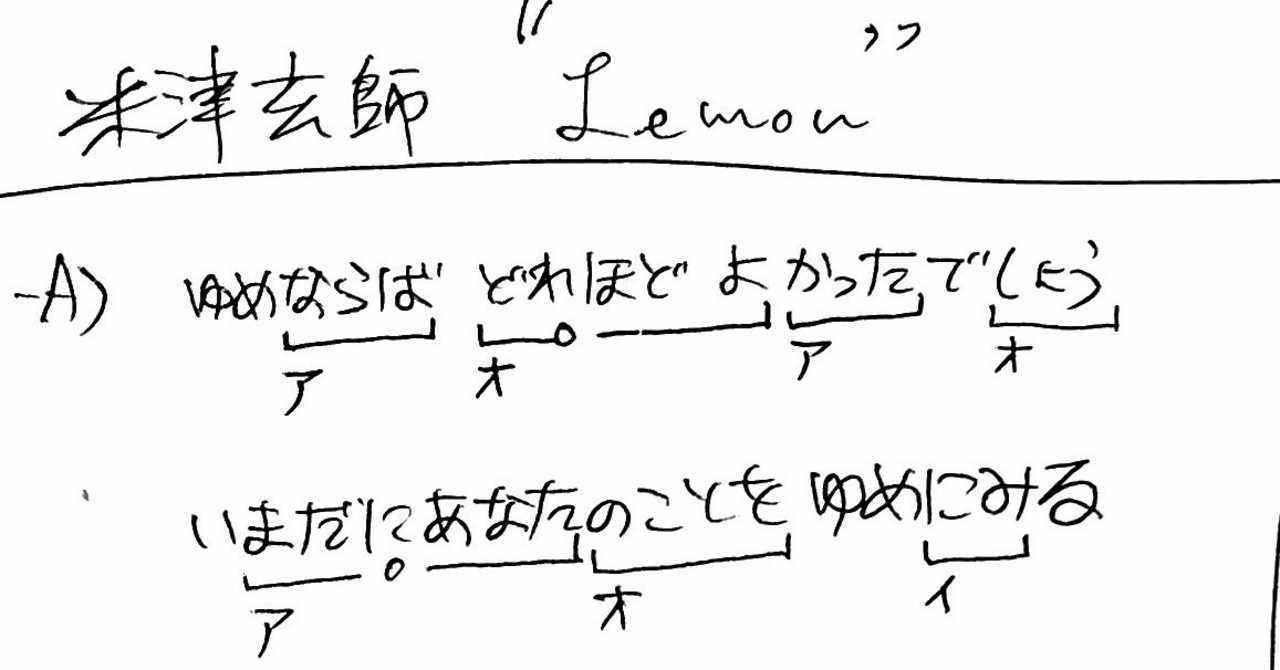 米津玄師 "Lemon"
-A) ゆめならば どれほど よかったでしょう
ア オ ア オ
いまだにあなたのことを ゆめにみる
ア オ イ